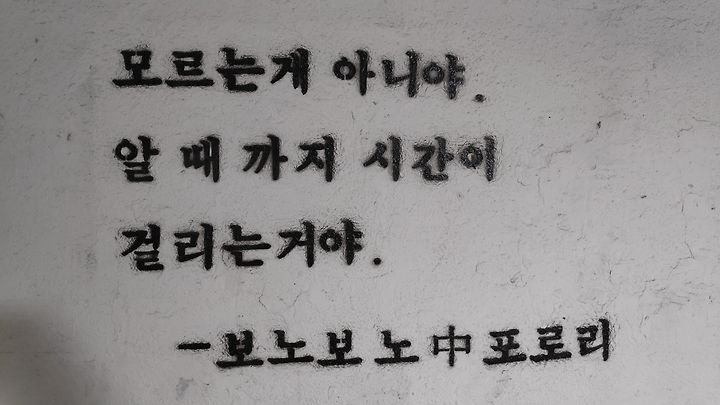 모르는게 아니야.
알 때 까지 시간이
걸리는거야.
-보노보노 中 포로리